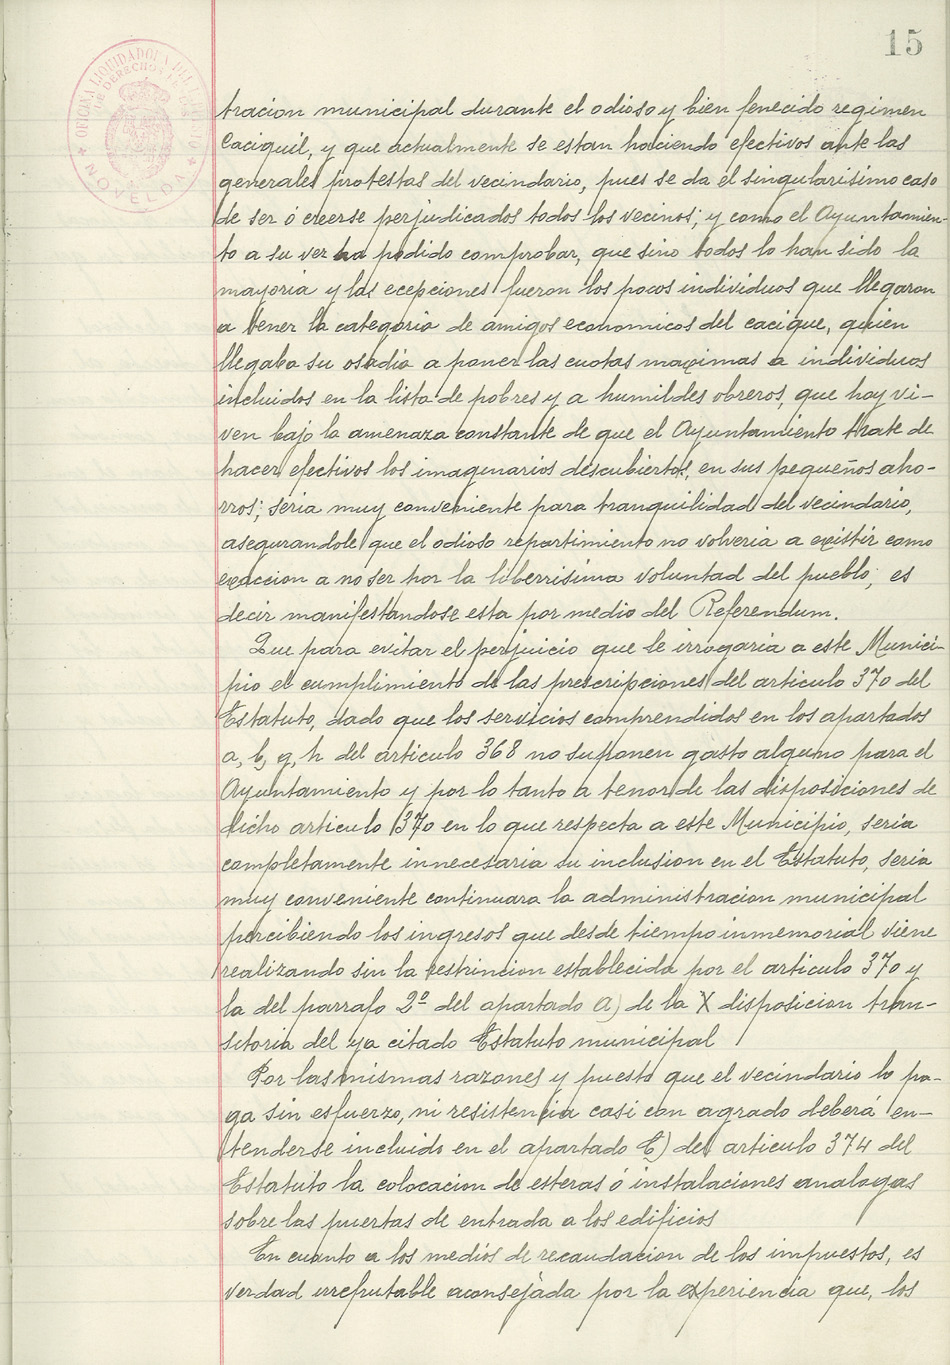 15
OFICINA LIQUIDADORA DEL
DE DERECHOS
NOVELDA
tracion municipal durante el odioso y bien fenecido regimen
Caciquil, y que actualmente se estan haciendo efectivos ante las
generales protestas del vecindario, pues se da el singularisimo caso
de ser ó creerse perjudicados todos los vecinos; y como el Ayuntamien-
to a su vez ha podido comprobar, que sino todos lo han sido la
mayoria y las ecepciones fueron los pocos individuos que llegaron
a tener la categoria de amigos economicos del cacique, quien
llegaba su osadia a poner las cuotas maximas a individuos
incluidos en la lista de pobres y a humildes obreros, que hoy vi-
ven bajo la amenaza constante de que el Ayuntamiento trate de
hacer efectivos los imaginarios descubiertos, en sus pequeños aho-
rros; seria muy conveniente para tranquilidad del vecindario,
asegurandole que el odioso repartimiento no volveria a existir como
exaccion a no ser por la liberrisima voluntad del pueblo, es
decir manifestandose esta por medio del Referendum.
Que para evitar el perjuicio que le irrogaria a este Munici-
pio el cumplimiento de las prescripciones del articulo 370 del
Estatuto, dado que los servicios comprendidos en los apartados
a, b, g, h del articulo 368 no suponen gasto alguno para el
Ayuntamiento y por lo tanto a tenor de las disposiciones de
dicho articulo 370 en lo que respecta a este Municipio, seria
completamente innecesaria su inclusion en el Estatuto, seria
muy conveniente continuara la administracion municipal
percibiendo los ingresos que desde tiempo inmemorial viene
realizando sin la restrincion establecida por el articulo 370 y
la del parrafo 2º del apartado a) de la X disposicion tran-
sitoria del ya citado Estatuto municipal
Por las mismas razones y puesto que el vecindario lo pa-
ga sin esfuerzo, ni resistencia casi con agrado deberá en-
tenderse incluido en el apartado E) del articulo 374 del
Estatuto la colocacion de esteras ó instalaciones analogas
sobre las puertas de entrada a los edificios
En cuanto a los medios de recaudacion de los impuestos, es
verdad irrefutable aconsejada por la experiencia que, los